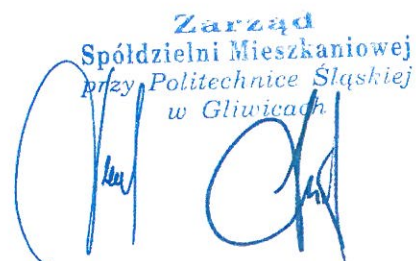 Zarząd
Spółdzielni Mieszkaniowej
przy Politechnice Śląskiej
w Gliwicach